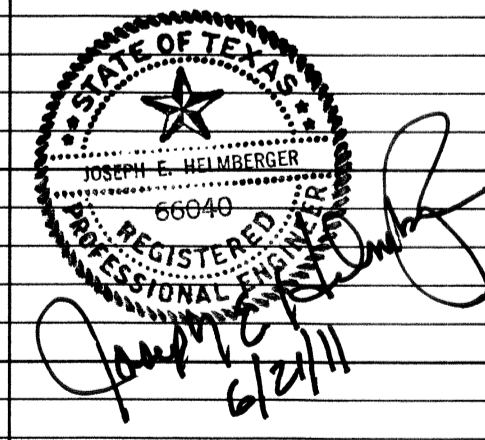 STATE OF TEXAS
JOSEPH E. HELMBERGER
66040
REGISTERED
PROFESSIONAL ENGINEER
Joseph E Helmberger
6/21/11